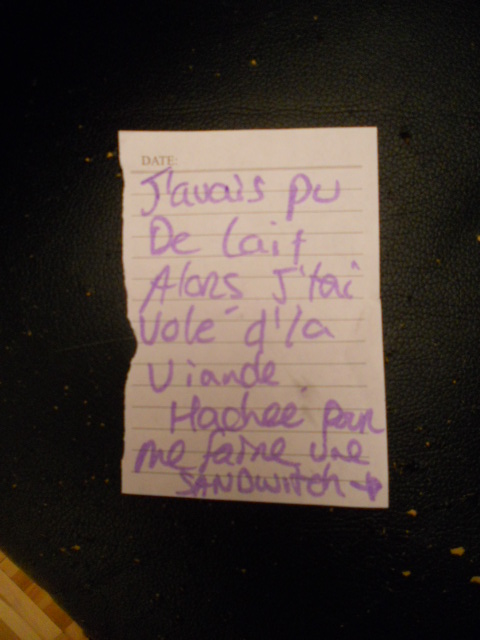 DATE:
J'avais pu
De lait
Alors J't'ai
Volé d'la
Viande
Hachee pour
me faire une
SANDWitch →